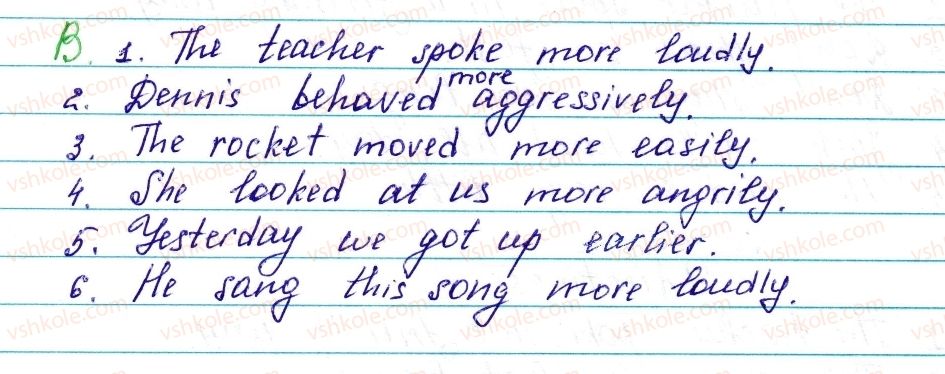 B. 1. The teacher spoke more loudly.
2. Dennis behaved more aggressively.
3. The rocket moved more easily.
4. She looked at us more angrily.
5. Yesterday we got up earlier.
6. He sang this song more loudly.